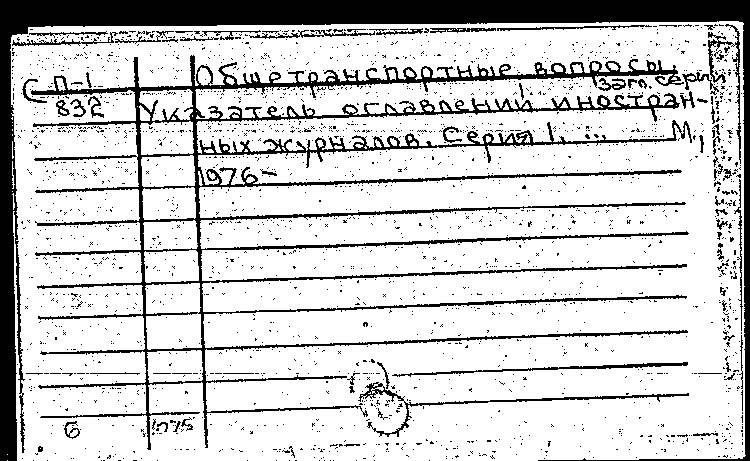 С П-1 Общетранспортные вопросы.
Заг. серии
832 Указатель оглавлений иностран-
ных журналов. Серия 1. ... М.,
1976-
6 1075